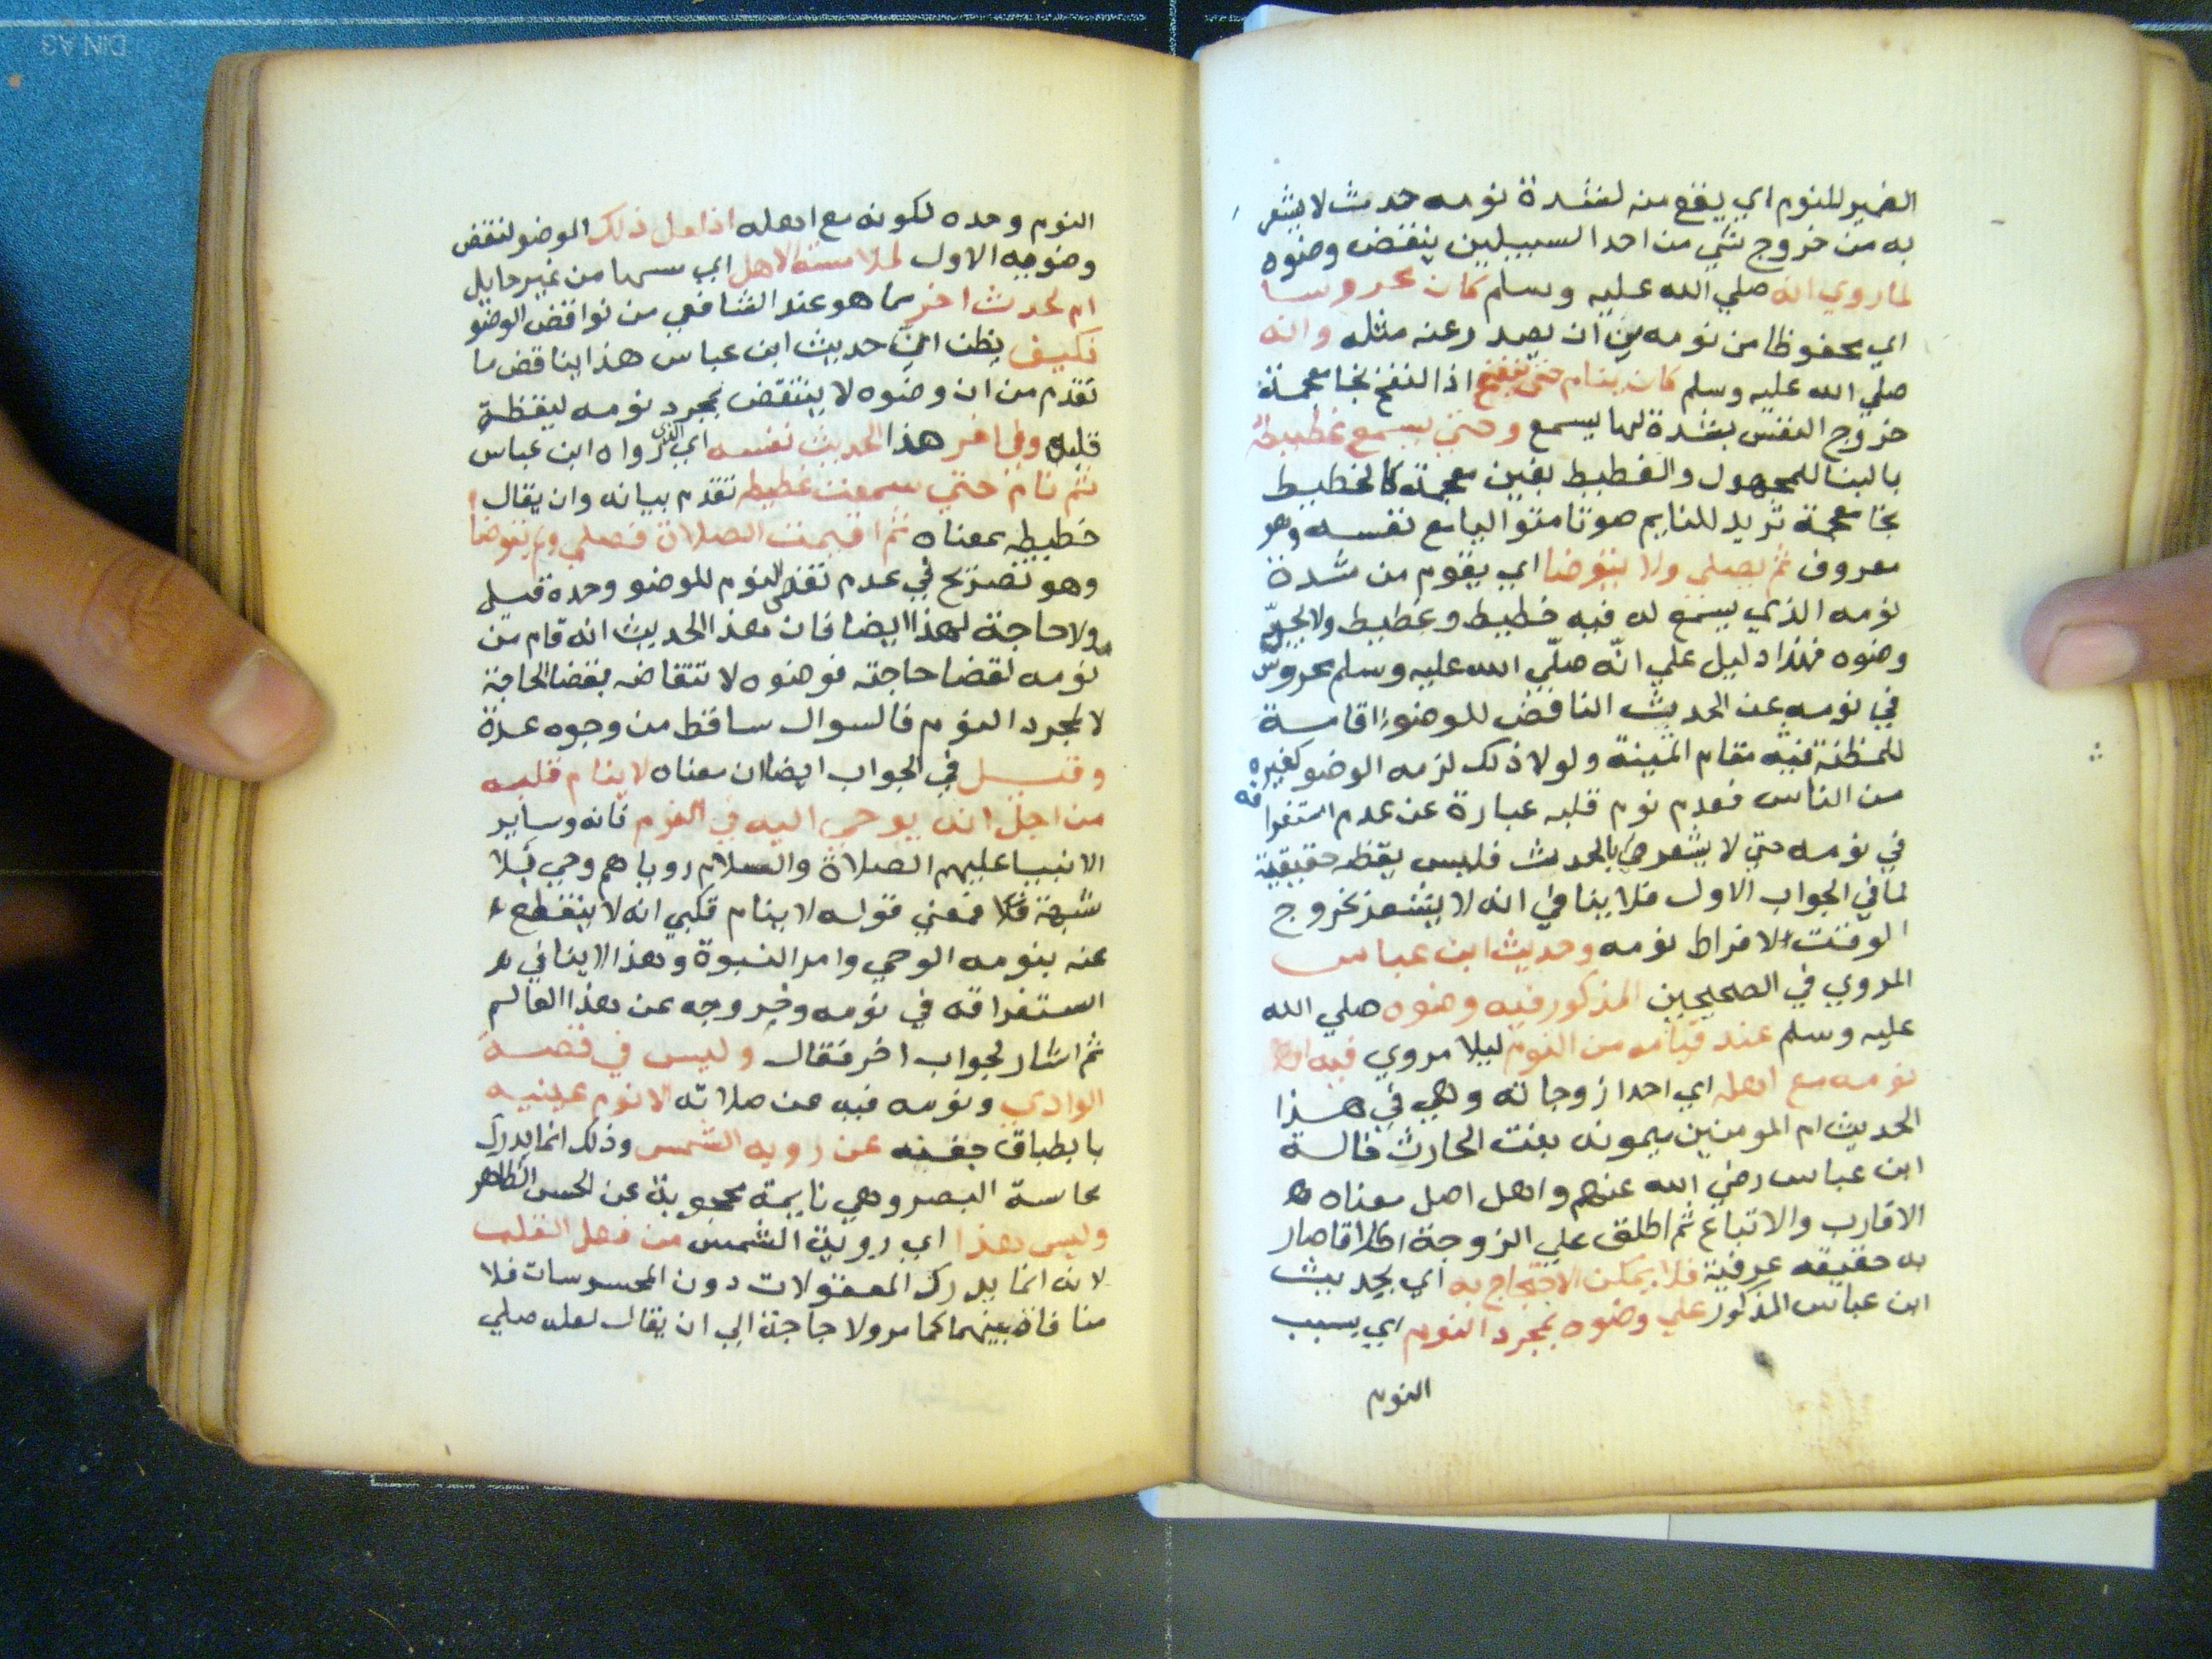 الضمير للنوم اي يقع منه لشدة نومه حدث لا يشعر
به من خروج شي من احد السبيلين ينقض وضوه
لما روي انه صلي الله عليه وسلم كان محروسا
اي محفوظا من نومه من ان يصدر عنه مثله وانه
صلي الله عليه وسلم كان ينام حتي ينفخ اذا النفخ بخا معجمة
خروج النفس بشدة لها يسمع وحتي يسمع غطيطه
بالبنا للمجهول والغطيط بغين معجمة كالخطيط
بخا معجمة تريد للنايم صوتا متواليا مع نفسه وهو
معروف ثم يصلي ولا يتوضا اي يقوم من شدة
نومه الذي يسمع له فيه خطيط وغطيط ولا يجدد
وضوه فهذا دليل علي انه صلي الله عليه وسلم محروس
في نومه عن الحديث الناقض للوضوء اقامة
للمظنة فيه مقام المينة ولولا ذلك لزمه الوضو كغيره
من الناس فعدم نوم قلبه عبارة عن عدم استغراقه
في نومه حتي لا يشعر بالحدث فليس يقظه حقيقية
لما في الجواب الاول فلا ينافي انه لا يشعر بخروج
الوقت لافراط نومه وحديث ابن عباس
المروي في الصحيحين المذكور فيه وضوه صلي الله
عليه وسلم عند قيامه من النوم ليلا مروي فيه
نومه مع اهله اي احد ازوجاته وهي في هذا
الحديث ام المومنين ميمونه بنت الحارث خالة
ابن عباس رضي الله عنهم واهل اصل معناه
الاقارب والاتباع ثم اطلق علي الزوجة اطلاقا صار
به حقيقه عرفية فلا يمكن الاحتجاج به اي بحديث
ابن عباس المذكور علي وضوه بمجرد النوم اي بسبب
النوم
النوم وحده لكونه مع اهله اذ لعل ذلك الوضو لنقض
وضوئه الاول لملامسته الاهل اي مسها من غير حايل
ام لحدث اخر مما هو عند الشافعي من نواقض الوضو
فكيف يظن ان حديث ابن عباس هذا يناقض ما
تقدم من ان وضوه لا ينتقض بمجرد نومه ليقظة
قلبه وفي اخر هذا الحديث نفسه اي الذي رواه ابن عباس
ثم نام حتي سمعت غطيطه تقدم بيانه وان يقال
خطيطه بمعناه ثم اقيمت الصلاة فصلي ولم يتوضا
وهو تصريح في عدم نقض النوم للوضو وحده قيل
ولا حاجة لهذا ايضا فان هذا الحديث انه قام من
نومه لقضا حاجته فوضوه لانتقاضه بقضا الحاجة
لا لمجرد النوم فالسوال ساقط من وجوه عدة
وقيل في الجواب ايضا ان معناه لا ينام قلبه
من اجل انه يوحي اليه في النوم فانه وساير
الانبيا عليهم الصلاة والسلام روياهم وحي بلا
شبهة فمعني قوله لا ينام قلبي انه لا ينقطع
عنه بنومه الوحي وامر النبوة وهذا لا ينافي
استغراقه في نومه وخروجه عن هذا العالم
ثم اشار لجواب اخر فقال وليس في قصة
الوادي ونومه فيه عن صلاته الا نوم عينيه
بانطباق جفنه عن رويه الشمس وذلك انما يدرك
بحاسة البصر وهي نايمة محجوبة عن الحس الظاهر
وليس هذا اي روية الشمس من فعل القلب
لانه انما يدرك المعقولات دون المحسوسات فلا
منافاة بينهما كما مر ولا حاجة الي ان يقال لعله صلي